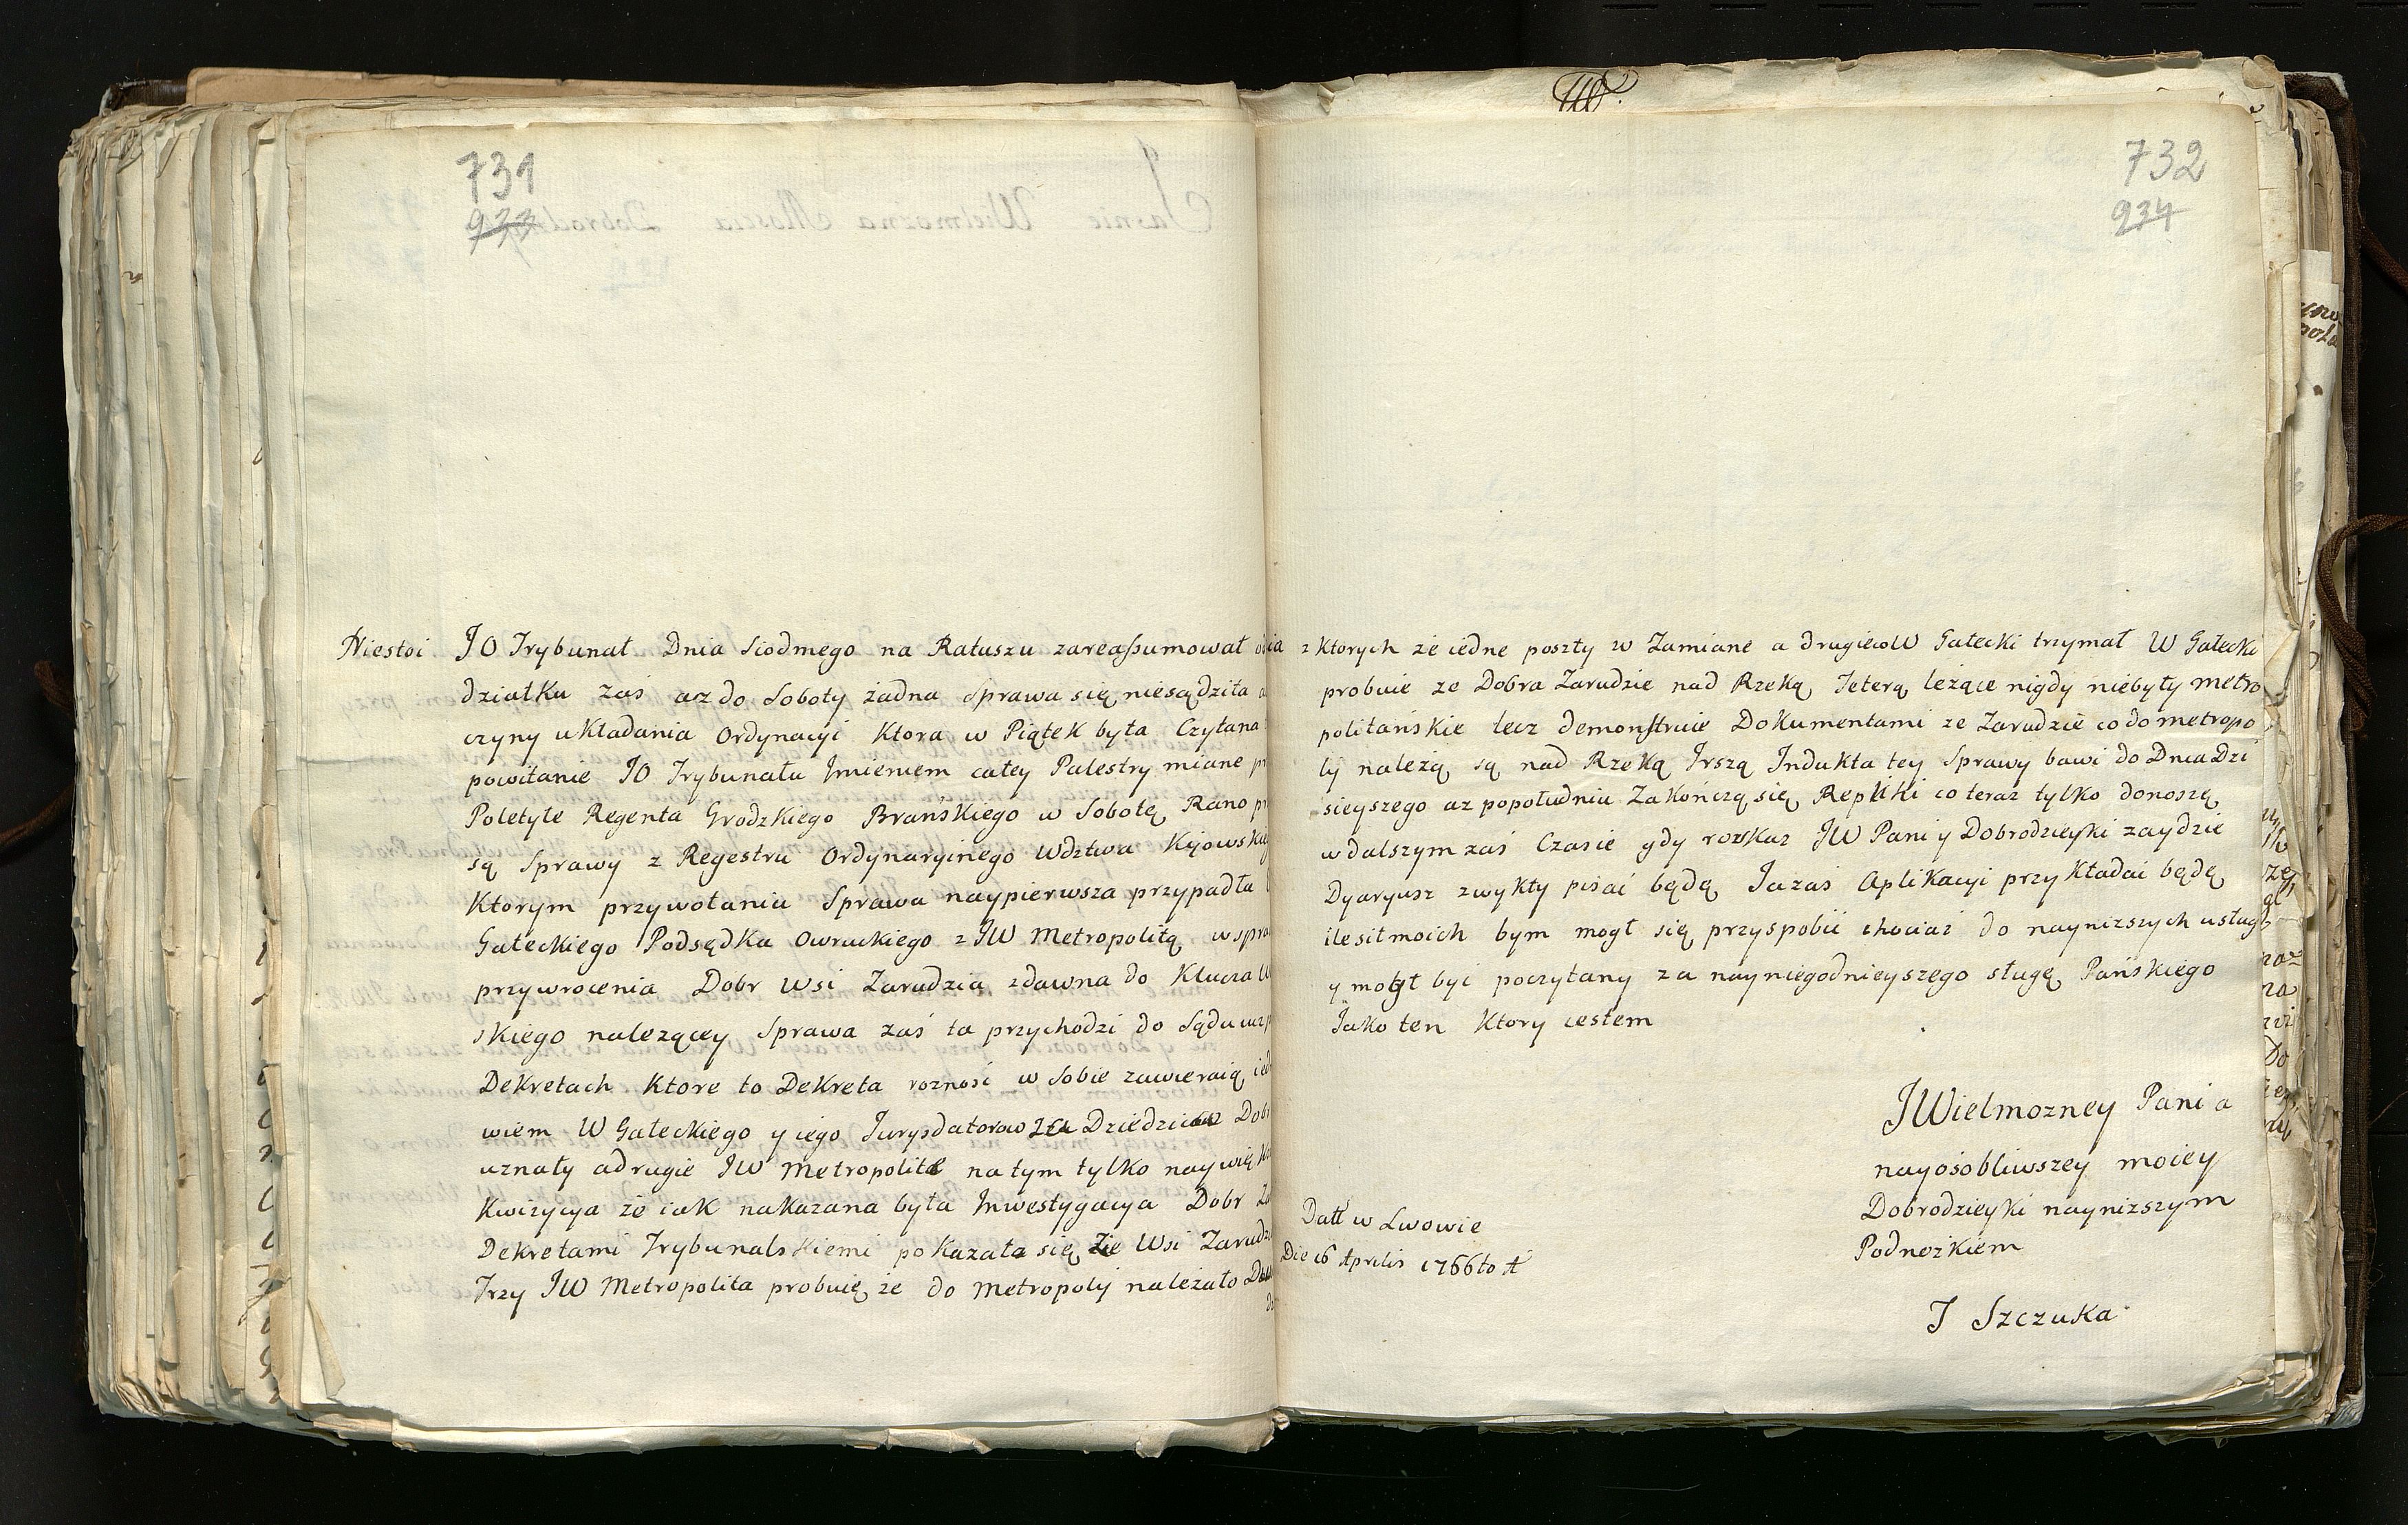 731
933
Niestoi JO Trybunał Dnia Siodmego na Ratuszu zareassumował
działku zaś az do Soboty żadna Sprawa się niesądziła
czyny układania Ordynacyi Ktora w Piątek była Czytana
powitanie JO Trybunału Imieniem całey Palestry miane
Poletyłe Regenta Grodzkiego Brańskiego w Sobotę Rano
są Sprawy z Regestru Ordynaryinego Wdztwa
Ktorym przywołaniu Sprawa naypierwsza przypadła
Gałeckiego Podsędka Owruckiego z JW Metropolitą
przywrocenia Dobr Wsi Zarudzia zdawna do Klucza
skiego nalezącey Sprawa zaś ta przychodzi do Sądu
Dekretach Ktore to Dekreta roznosć w Sobie zawieraią
wiem W Gałeckiego y iego Jurysdatorow za Dziedzicow
uznały adrugie JW Metropolitę na tym tylko
Kwizycya że iak nakazana była Inwestygacya Dobr
Dekretami Trybunalskiemi pokazała się że Wsi
Trzy JW Metropolita probuię że do Metropoly należało
732
934
z Ktorych że iedne poszły w Zamiane a drugie W Gałecki trzymał W Gałecki
probuie ze Dobra Zarudzie nad Rzeką Teterą leżące nigdy niebyły metro
politańskie lecz demonstruie Dokumentami ze Zarudzie co do metropo
ly należą są nad Rzeką Irszą Indukta tey Sprawy bawi do Dnia Dzi
sieyszego az popołudniu Zakończą się Repliki co teraz tylko donoszę
wdalszym zaś Czasie gdy rozkaz JW Pani y Dobrodzieyki zaydzie
Dyaryusz zwykły pisać będę Jazaś Aplikacyi przykładać będę
ilesił moich bym mogł się przyspobić chociaż do nayniższych usług
y mogł być poczytany za nayniegodnieyszego sługę Pańskiego
Jako ten Ktory iestem
JWielmozney Pani a
nayosobliwszey moiey
Dobrodzieyki nayniższym
Podnożkiem
Datt w Lwowie
Die 16 Aprilis 1766to
J Szczuka